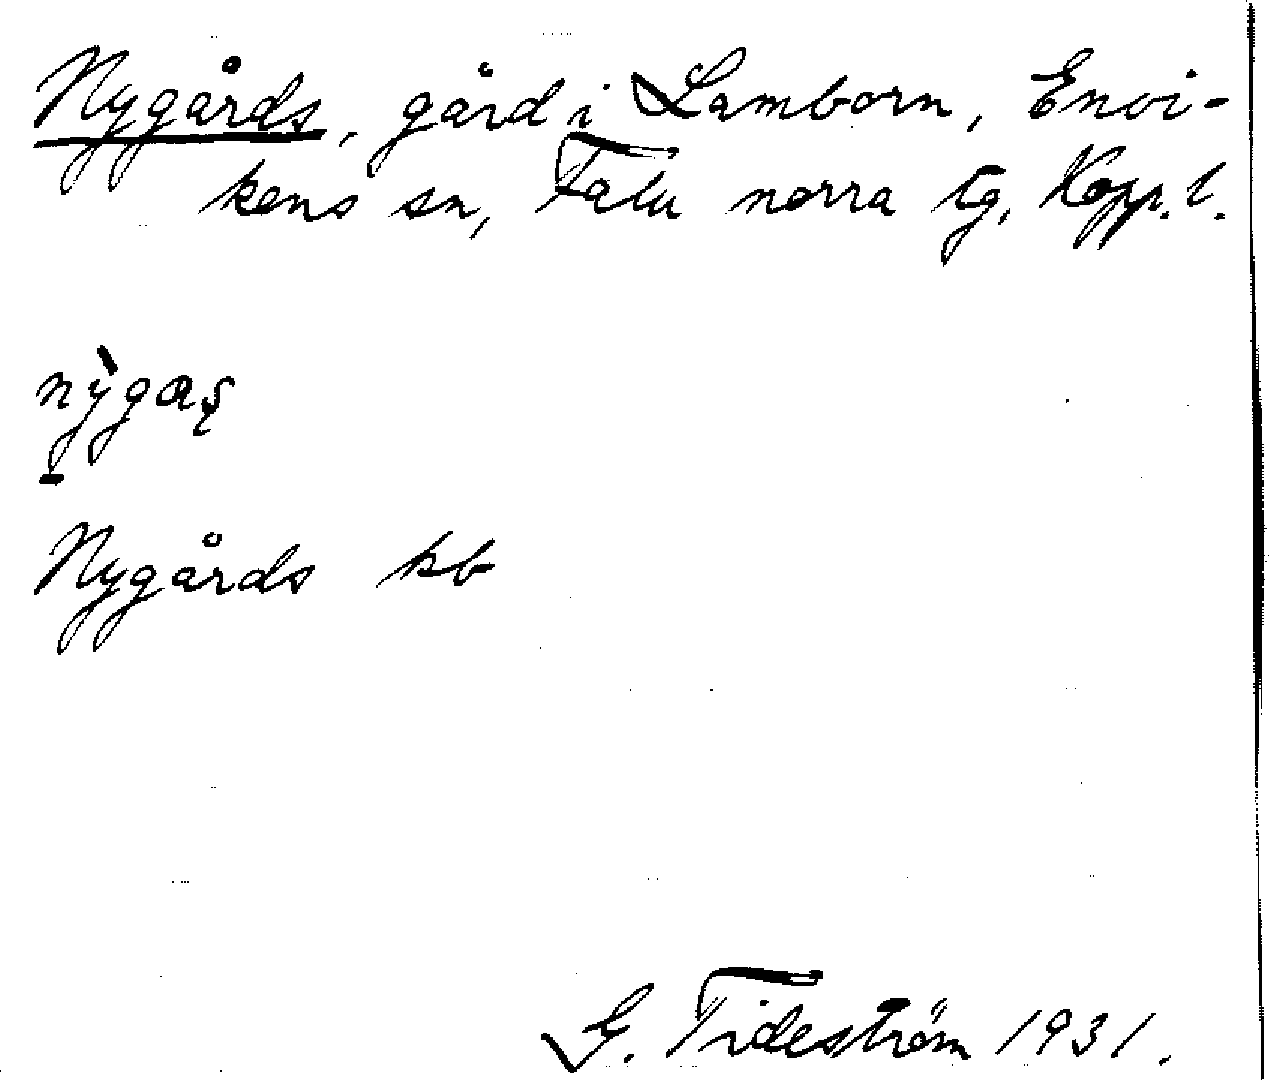 Nygårds, gård i Lamborn, Envi-
kens sn, Falu norra tg, Kopp. l.
nỳgaʂ
Nygårds kb
G. Tideström 1931.